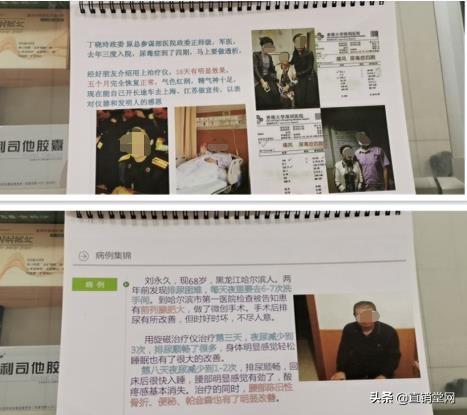 丁晓玲政委 原总参谋部医院政委正师级,军医,
去年三度入院,尿毒症到了四期,马上要做透析,
经好朋友介绍用上治疗仪,18天有明显效果,
五个月完全恢复正常,气色红润,精气神十足,
现在能自己开长途车去上海、江苏做宣传,以表
对仪器和发明人的感恩
香港大学深圳医院
痛风 尿毒症四期
香港大学深圳医院
痛风 尿毒症四期
利司他胶囊
病例集锦
病例
刘永久,现68岁,黑龙江哈尔滨人。两
年前发现排尿困难,每天夜里要去6-7次洗
手间。到哈尔滨市第一医院检查被告知患
有前列腺肥大,做了微创手术。手术后排
尿有所改善,但时好时坏,不尽人意。
用旋磁治疗仪治疗第三天,夜尿减少到
3次,排尿顺畅了很多,身体明显感觉轻松
睡眠也有了很大的改善。
第八天夜尿减少到1-2次,排尿顺畅,回
床后很快入睡,腰部明显感觉有劲了,酸
疼感基本消失。治疗的同时,腰部陈旧性
骨折、便秘、帕金森也有了明显改善。
利司他胶
头条 @直销堂网